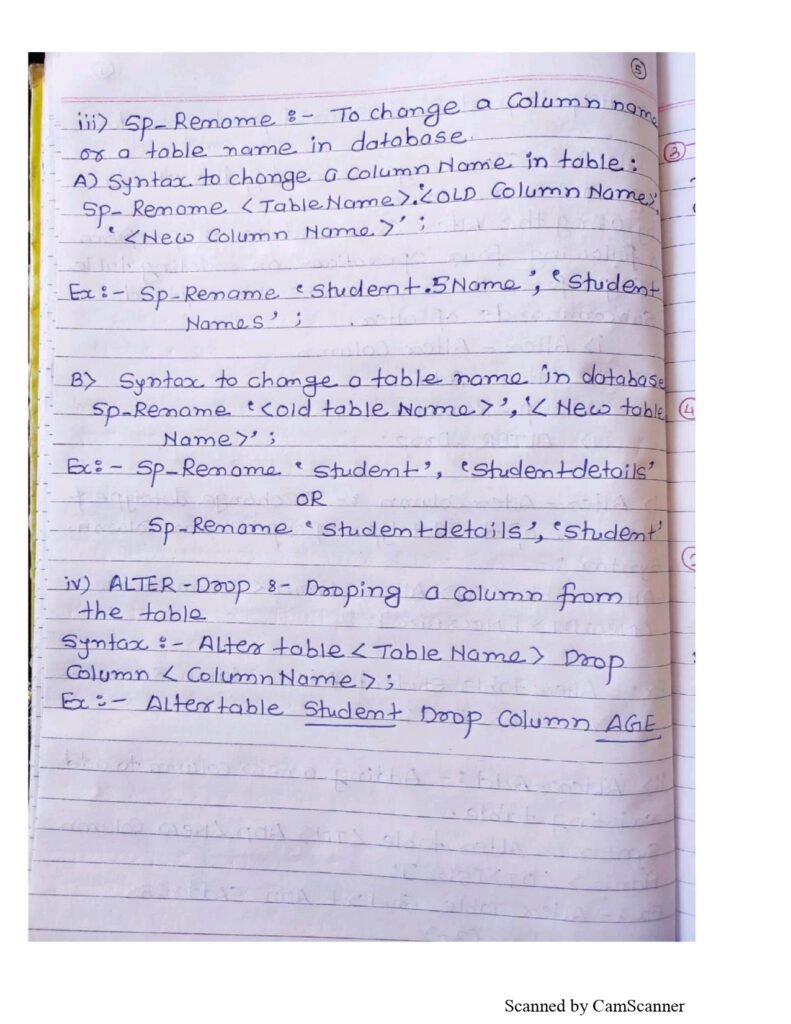 5
iii) Sp-Rename :- To change a Column name
or a table name in database.
3
A) Syntax to change a Column Name in table:
Sp-Rename <Table Name>.'<OLD Column Name>,
'<New Column Name>' ;
Ex:- Sp-Rename 'Student.SName', 'Student
Names' ;
B) Syntax to change a table name in database
Sp-Rename '<old table Name>', '< New table
4
Name>' ;
Ex:- Sp-Rename 'Student', 'Studentdetails'
OR
Sp-Rename 'Studentdetails', 'Student'
iv) ALTER-Drop :- Droping a column from
the table
Syntax :- Alter table <Table Name> Drop
Column < Column Name> ;
Ex :- Alter table Student Drop Column AGE
Scanned by CamScanner